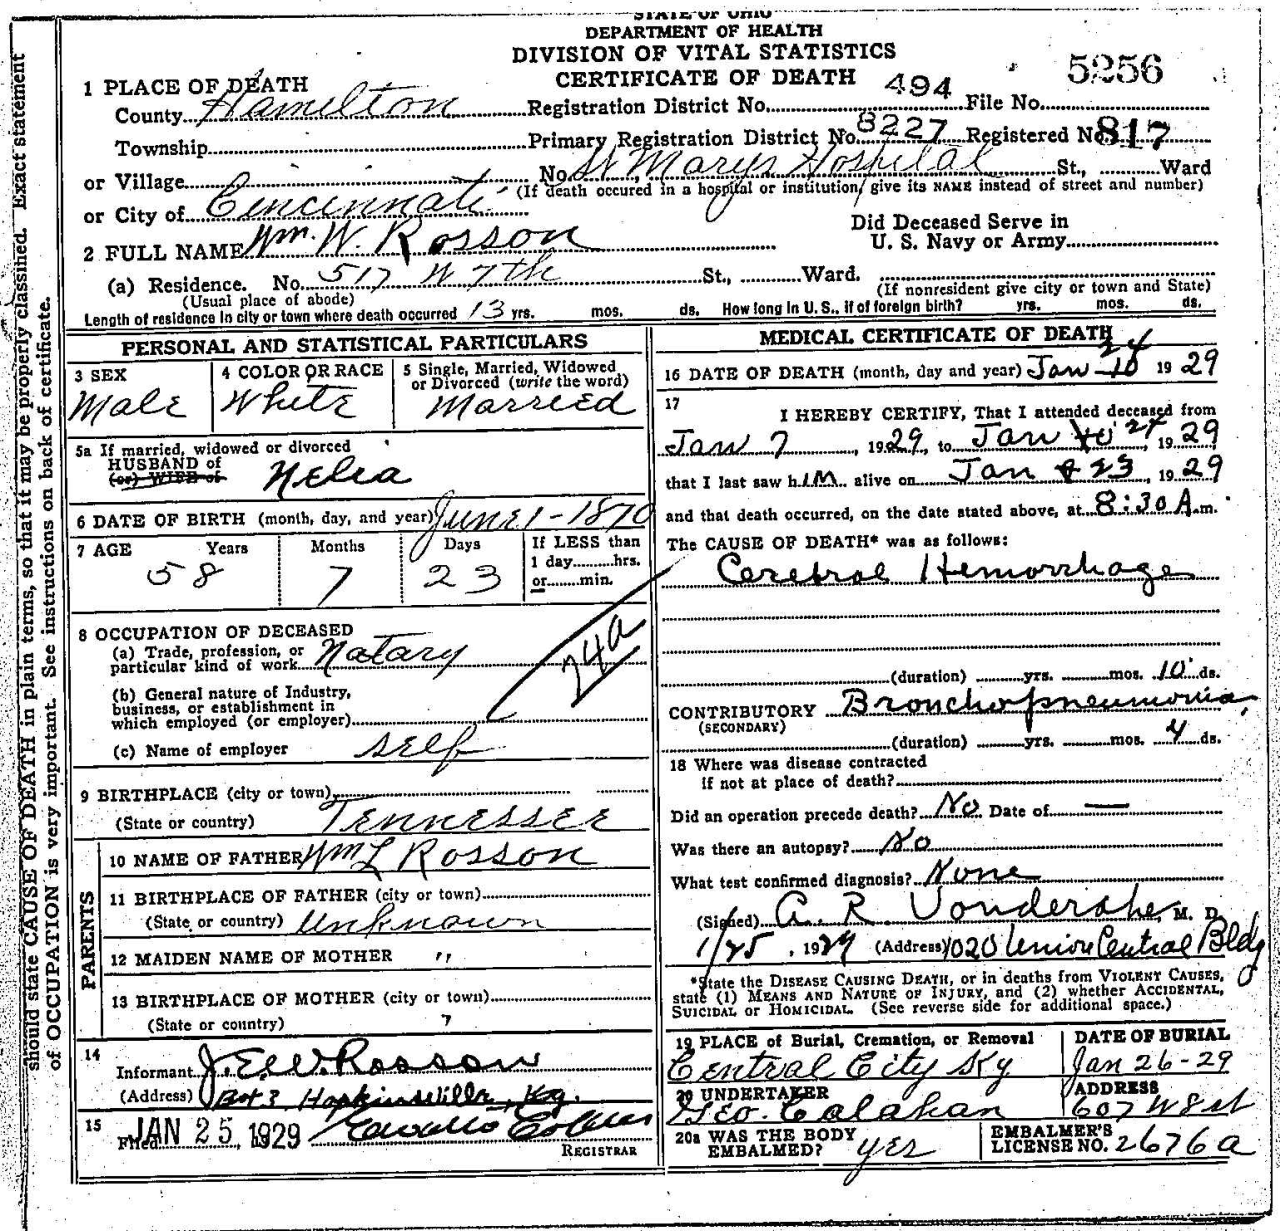 STATE OF OHIO
DEPARTMENT OF HEALTH
DIVISION OF VITAL STATISTICS
CERTIFICATE OF DEATH
5256
1 PLACE OF DEATH
County Hamilton Registration District No. 494 File No.
Township Primary Registration District No. 8227 Registered No. 817
or Village No. St Marys Hospital St., Ward
(If death occured in a hospital or institution, give its NAME instead of street and number)
or City of Cincinnati
Did Deceased Serve in
U. S. Navy or Army
2 FULL NAME Wm. W. Rosson
(a) Residence. No. 517 W 7th St., Ward.
(Usual place of abode) (If nonresident give city or town and State)
Length of residence in city or town where death occurred 13 yrs. mos. ds. How long in U. S., if of foreign birth? yrs. mos. ds.
PERSONAL AND STATISTICAL PARTICULARS
3 SEX 4 COLOR OR RACE 5 Single, Married, Widowed
or Divorced (write the word)
Male White Married
5a If married, widowed or divorced
HUSBAND of
(or) WIFE of Nelia
6 DATE OF BIRTH (month, day, and year) June 1-1870
7 AGE Years Months Days If LESS than
1 day hrs.
or min.
58 7 23
8 OCCUPATION OF DECEASED
(a) Trade, profession, or
particular kind of work Notary
(b) General nature of Industry,
business, or establishment in
which employed (or employer)
(c) Name of employer self
74a
9 BIRTHPLACE (city or town)
(State or country) Tennessee
PARENTS
10 NAME OF FATHER Wm L Rosson
11 BIRTHPLACE OF FATHER (city or town)
(State or country) Unknown
12 MAIDEN NAME OF MOTHER "
13 BIRTHPLACE OF MOTHER (city or town)
(State or country) ?
14
Informant J. E. W. Rosson
(Address) Box 3 Hopkinsville, Ky.
15
Filed JAN 25, 1929
REGISTRAR
MEDICAL CERTIFICATE OF DEATH
16 DATE OF DEATH (month, day and year) Jan 10 24 1929
17
I HEREBY CERTIFY, That I attended deceased from
Jan 7, 1929, to Jan 10 24, 1929
that I last saw him alive on Jan 23, 1929
and that death occurred, on the date stated above, at 8:30 A.m.
The CAUSE OF DEATH* was as follows:
Cerebral Hemorrhage
(duration) yrs. mos. 10 ds.
CONTRIBUTORY Bronchopneumonia,
(SECONDARY)
(duration) yrs. mos. 4 ds.
18 Where was disease contracted
if not at place of death?
Did an operation precede death? No Date of —
Was there an autopsy? No
What test confirmed diagnosis? None
(Signed) A. R. Vonderahe, M. D.
1/25, 1929 (Address) 1020 Union Central Bldg
*State the DISEASE CAUSING DEATH, or in deaths from VIOLENT CAUSES,
state (1) MEANS AND NATURE OF INJURY, and (2) whether ACCIDENTAL,
SUICIDAL or HOMICIDAL. (See reverse side for additional space.)
19 PLACE of Burial, Cremation, or Removal DATE OF BURIAL
Central City Ky Jan 26-29
20 UNDERTAKER ADDRESS
Geo. Calahan 607 W 8 st
20a WAS THE BODY
EMBALMED? yes
EMBALMER'S
LICENSE NO. 2676a
should state CAUSE OF DEATH in plain terms, so that it may be properly classified. Exact statement
of OCCUPATION is very important. See instructions on back of certificate.